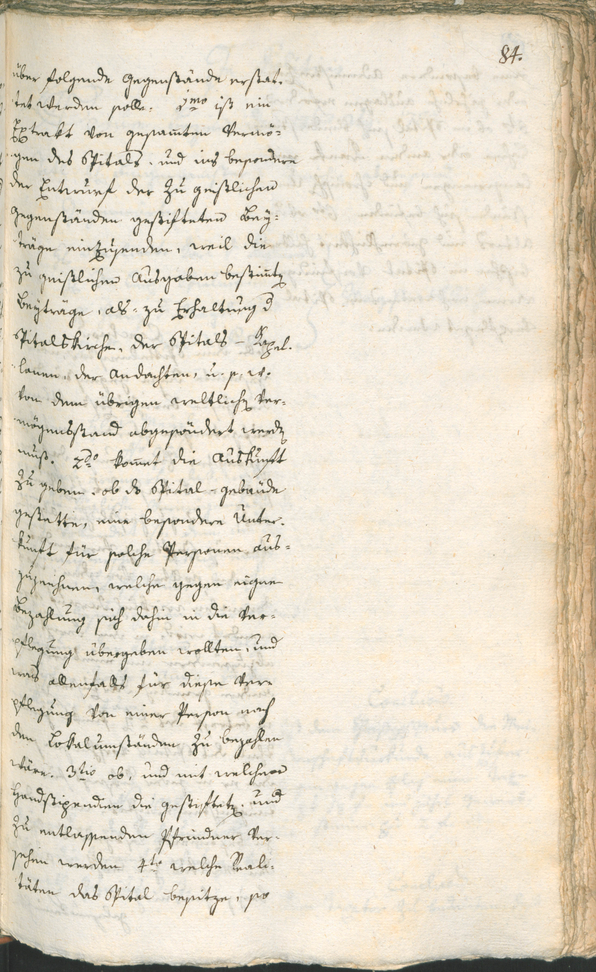 84.
über folgende Gegenstände erstat-
tet werden solle: 1mo ist ein
Extrakt von gesamten Vermö-
gen des Spitals, und ins besondere
der Entwurf der zu geistlichen
Gegenständen gestifteten Bey-
träge einzusenden, weil die
zu geistlichen Ausgaben bestimte
Beyträge, als: zu Erhaltung d
Spitalskirche, der Spitals-Kapel-
lanen, der Andachten, u. s. w.
von dem übrigen weltlichen Ver-
mögensstand abgesöndert werden
muß. 2do komet die Auskunft
zu geben, ob ds Spital-gebäude
gestatte, eine besondere Unter-
kunft für solche Personen aus-
zuzeichnen, welche gegen eigne
Bezahlung sich dahin in die Ver-
pflegung übergeben wollten, und
was allenfalls für diese Ver-
pflegung von einer Person nach
den Lokalumständen zu bezahlen
wäre. 3tio ob, und mit welchen
Handstipendien die gestifteten, und
zu entlassenden Pfründner ver-
sehen werden 4to welche Reali-
täten das Spital besitze, so